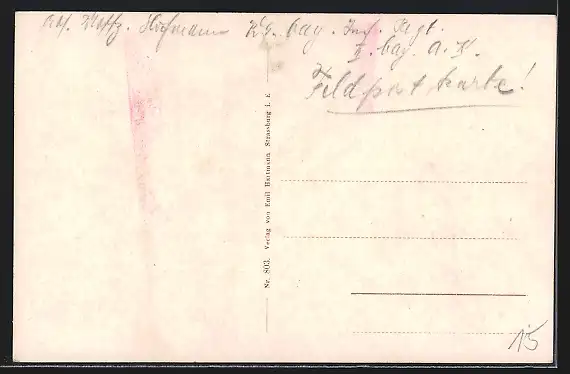 Hofmann bay. Inf. Regt.
II. bay. A. K.
Feldpostkarte!
Nr. 803. Verlag von Emil Hartmann, Strassburg i. E
15